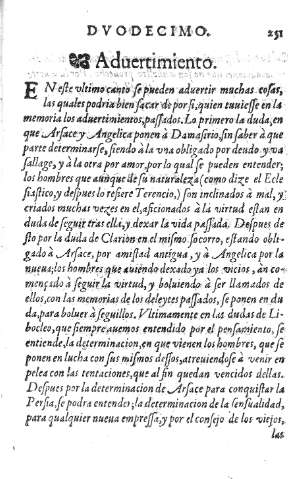 DVODECIMO. 251
Aduertimiento.
EN este vltimo canto se pueden aduertir muchas cosas,
las quales podria bien sacar de por si, quien tuuiesse en la
memoria los aduertimientos, passados. Lo primero la duda, en
que Arsace y Angelica ponen à Damasirio, sin saber à que
parte determinarse, siendo à la vna obligado por deudo y va
sallage, y à la otra por amor, por lo qual se pueden entender;
los hombres que aunque de su naturaleza (como dize el Ecle
siastico, y despues lo refiere Terencio,) son inclinados à mal, y
criados muchas vezes en el, aficionados à la virtud estan en
duda de seguir tras ella, y dexar la vida passada. Despues de
sto por la duda de Clarion en el mismo socorro, estando obli-
gado à Arsace, por amistad antigua, y à Angelica por la
nueua; los hombres que auiendo dexado ya los vicios, an co-
mençado à seguir la virtud, y boluiendo à ser llamados de
ellos, con las memorias de los deleytes passados, se ponen en du
da, para boluer à seguillos. Vltimamente en las dudas de Li-
bocleo, que siempre auemos entendido por el pensamiento, se
entiende, la determinacion, en que vienen los hombres, que se
ponen en lucha con sus mismos dessos, atreuiendose à venir en
pelea con las tentaciones, que al fin quedan vencidos dellas.
Despues por la determinacion de Arsace para conquistar la
Persia, se podra entender; la determinacion de la sensualidad,
para qualquier nueua empressa, y por el consejo de los viejos,
las